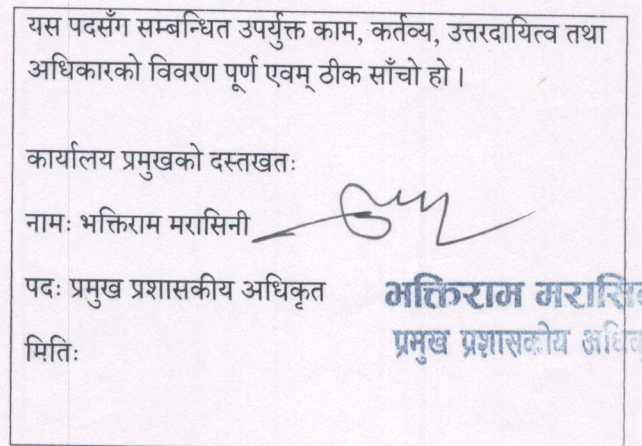 यस पदसँग सम्बन्धित उपर्युक्त काम, कर्तव्य, उत्तरदायित्व तथा
अधिकारको विवरण पूर्ण एवम् ठीक साँचो हो ।
कार्यालय प्रमुखको दस्तखतः
नामः भक्तिराम मरासिनी
पदः प्रमुख प्रशासकीय अधिकृत
भक्तिराम
प्रमुख प्रशासकीय
मितिः